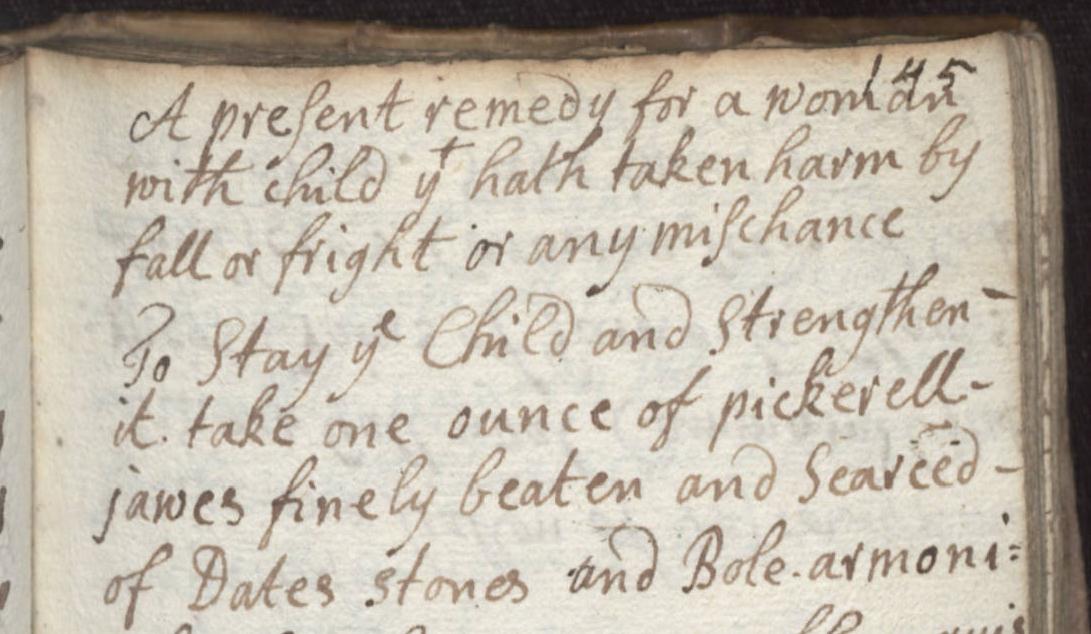 145
A present remedy for a woman
with child yt hath taken harm by
fall or fright or any mischance
To Stay ye Child and Strengthen-
it. take one ounce of pickerell-
jawes finely beaten and Searced-
of Dates stones and Bole-armoni=